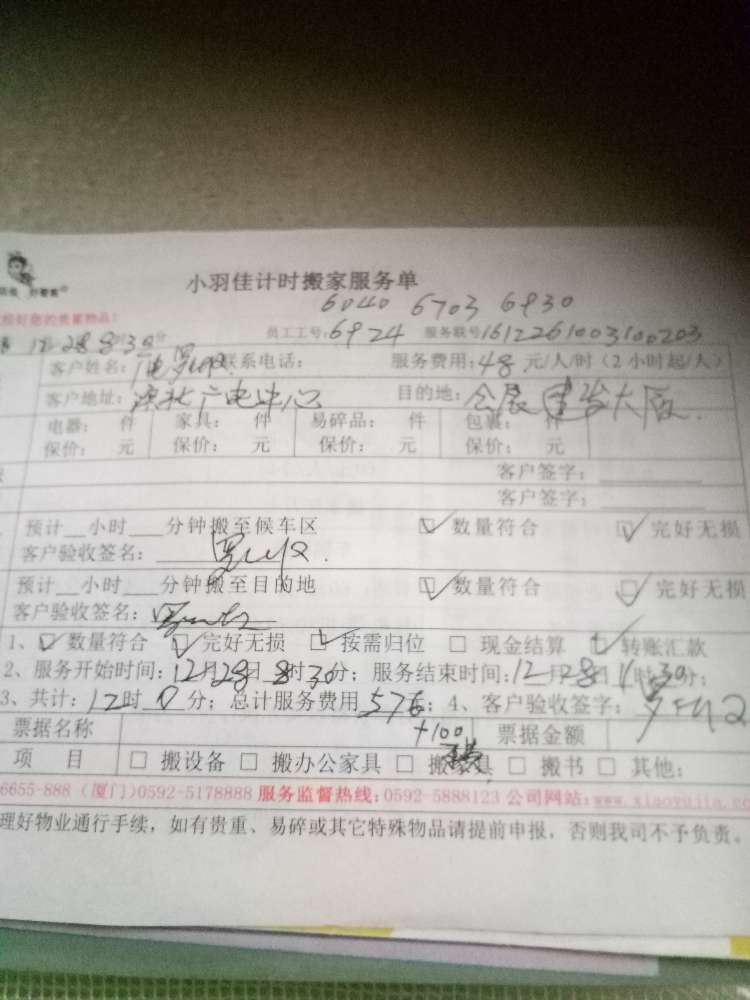 小羽佳计时搬家服务单
6040 6703 6930
您好您的贵重物品!
员工工号:6924 服务联号1612261003100203
12 28 8 30分
客户姓名: 联系电话: 服务费用:48 元/人/时(2小时起/人)
客户地址: 广电中心 目的地:会展建发大厦.
电器: 件 家具: 件 易碎品: 件 包裹: 件
保价: 元 保价: 元 保价: 元 保价: 元
客户签字:
客户签字:
预计__小时___分钟搬至候车区 ☑数量符合 ☑完好无损
客户验收签名:
预计__小时___分钟搬至目的地 ☑数量符合 ☑完好无损
客户验收签名:
1、☑数量符合 ☑完好无损 ☑按需归位 □现金结算 ☑转账汇款
2、服务开始时间:12月28日8时30分;服务结束时间:12月28日11时30分;
3、共计:12时0分;总计服务费用576;4、客户验收签字:
+100
票据名称 票据金额
项 目 □搬设备 □搬办公家具 □搬家具 □搬书 □其他:
6655-888(厦门)0592-5178888 服务监督热线:0592-5888123 公司网站:www.xiaoyujia.co
理好物业通行手续,如有贵重、易碎或其它特殊物品请提前申报,否则我司不予负责。